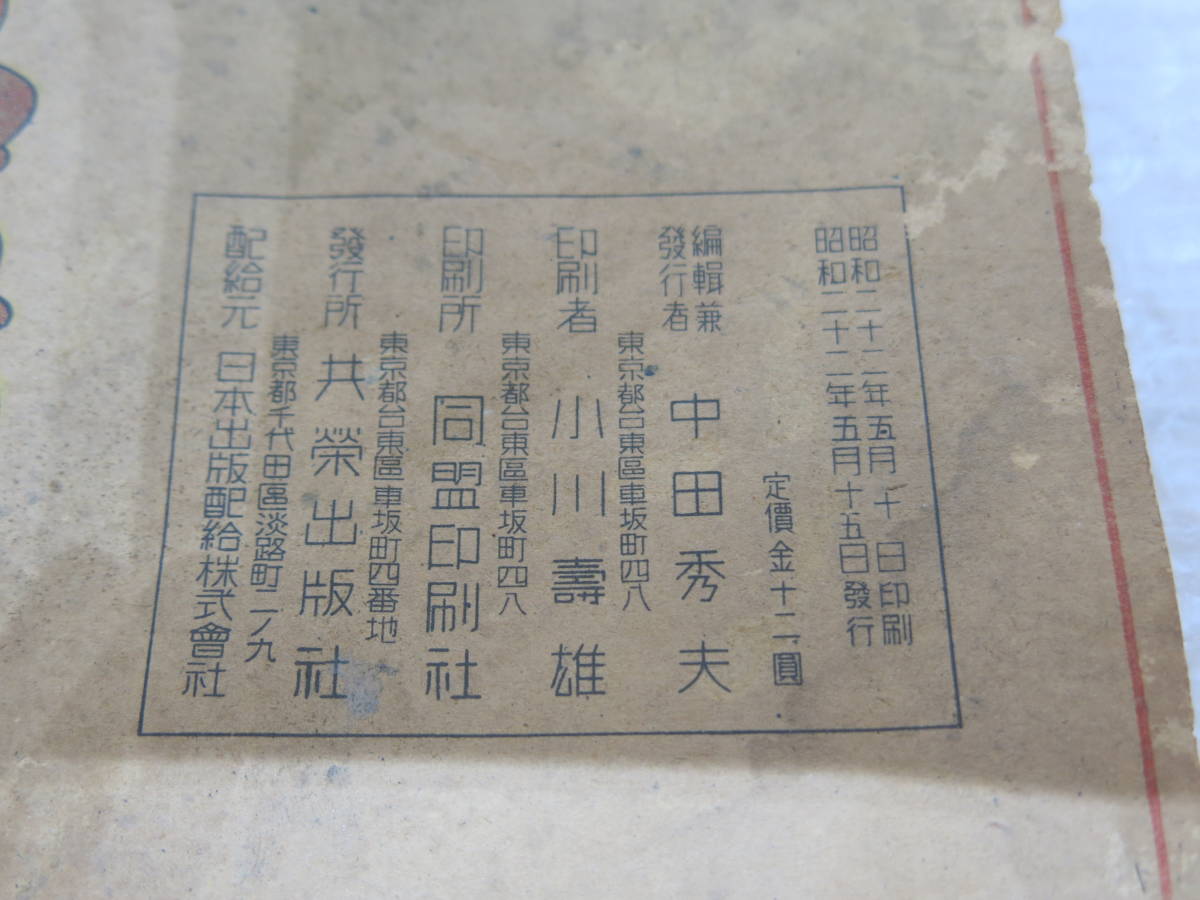 昭和二十二年五月十日印刷
昭和二十二年五月十五日發行
定價金十二圓
編輯兼
發行者
中田秀夫
東京都台東區車坂町四八
印刷者 小川壽雄
東京都台東區車坂町四八
印刷所 同盟印刷社
東京都台東區車坂町四番地
發行所 共榮出版社
東京都千代田區淡路町二ノ九
配給元 日本出版配給株式會社